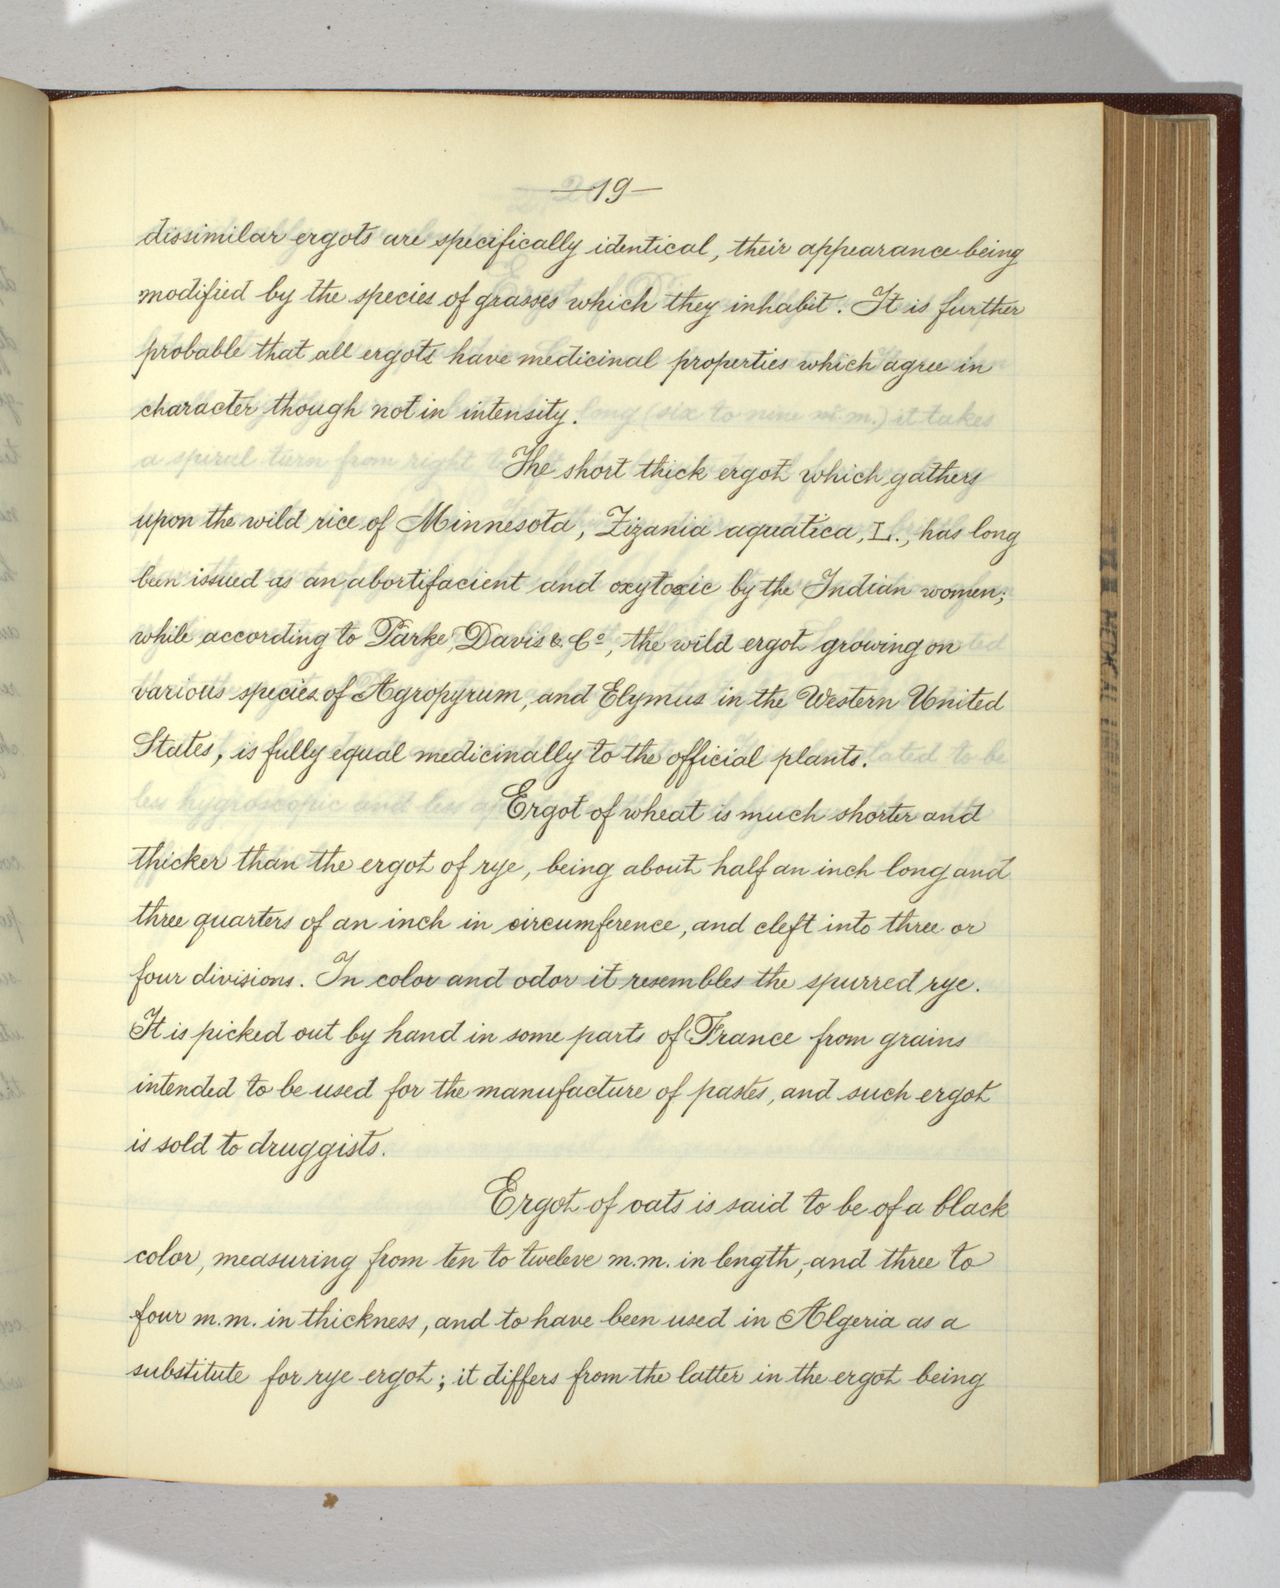 —19—
dissimilar ergots are specifically identical, their appearance being
modified by the species of grasses which they inhabit. It is further
probable that all ergots have medicinal properties which agree in
character though not in intensity.
The short thick ergot which gathers
upon the wild rice of Minnesota, Zizania aquatica, L., has long
been issued as an abortifacient and oxytoxic by the Indian women;
while according to Parke, Davis & Co, the wild ergot growing on
various species of Agropyrum, and Elymus in the Western United
States, is fully equal medicinally to the official plants.
Ergot of wheat is much shorter and
thicker than the ergot of rye, being about half an inch long and
three quarters of an inch in circumference, and cleft into three or
four divisions. In color and odor it resembles the spurred rye.
It is picked out by hand in some parts of France from grains
intended to be used for the manufacture of pastes, and such ergot
is sold to druggists.
Ergot of oats is said to be of a black
color, measuring from ten to tweleve m.m. in length, and three to
four m.m. in thickness, and to have been used in Algeria as a
substitute for rye ergot; it differs from the latter in the ergot being